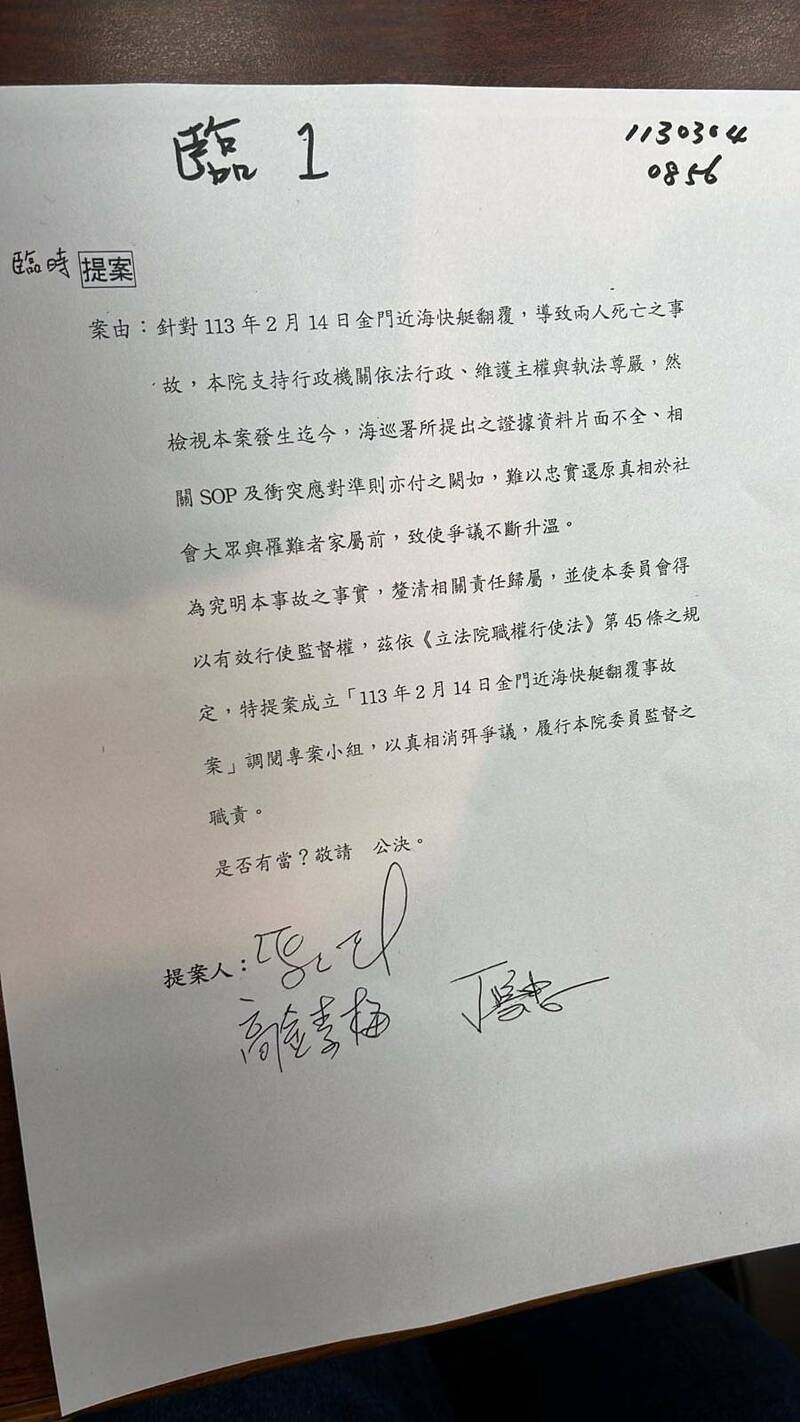 臨 1
1130304
0856
臨時提案
案由：針對 113 年 2 月 14 日金門近海快艇翻覆，導致兩人死亡之事
故，本院支持行政機關依法行政、維護主權與執法尊嚴，然
檢視本案發生迄今，海巡署所提出之證據資料片面不全、相
關 SOP 及衝突應對準則亦付之闕如，難以忠實還原真相於社
會大眾與罹難者家屬前，致使爭議不斷升溫。
為究明本事故之事實，釐清相關責任歸屬，並使本委員會得
以有效行使監督權，茲依《立法院職權行使法》第 45 條之規
定，特提案成立「113 年 2 月 14 日金門近海快艇翻覆事故
案」調閱專案小組，以真相消弭爭議，履行本院委員監督之
職責。
是否有當？敬請　公決。
提案人：
高金素梅